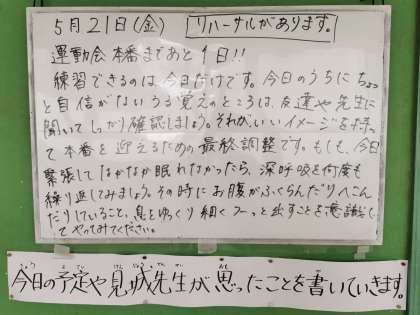 5月21日(金) リハーサルがあります。
運動会本番まであと1日!!
練習できるのは今日だけです。今日のうちにちょっ
と自信がないうろ覚えのところは、友達や先生に
聞いてしっかり確認しましょう。それが、いいイメージを持っ
て本番を迎えるための最終調整です。もしも、今日
緊張してなかなか眠れなかったら、深呼吸を何度も
繰り返してみましょう。その時にお腹がふくらんだりへこん
だりしていること、息をゆっくり細くフーっと出すことを意識し
てやってみてください。
今日の予定や見城先生が思ったことを書いていきます。